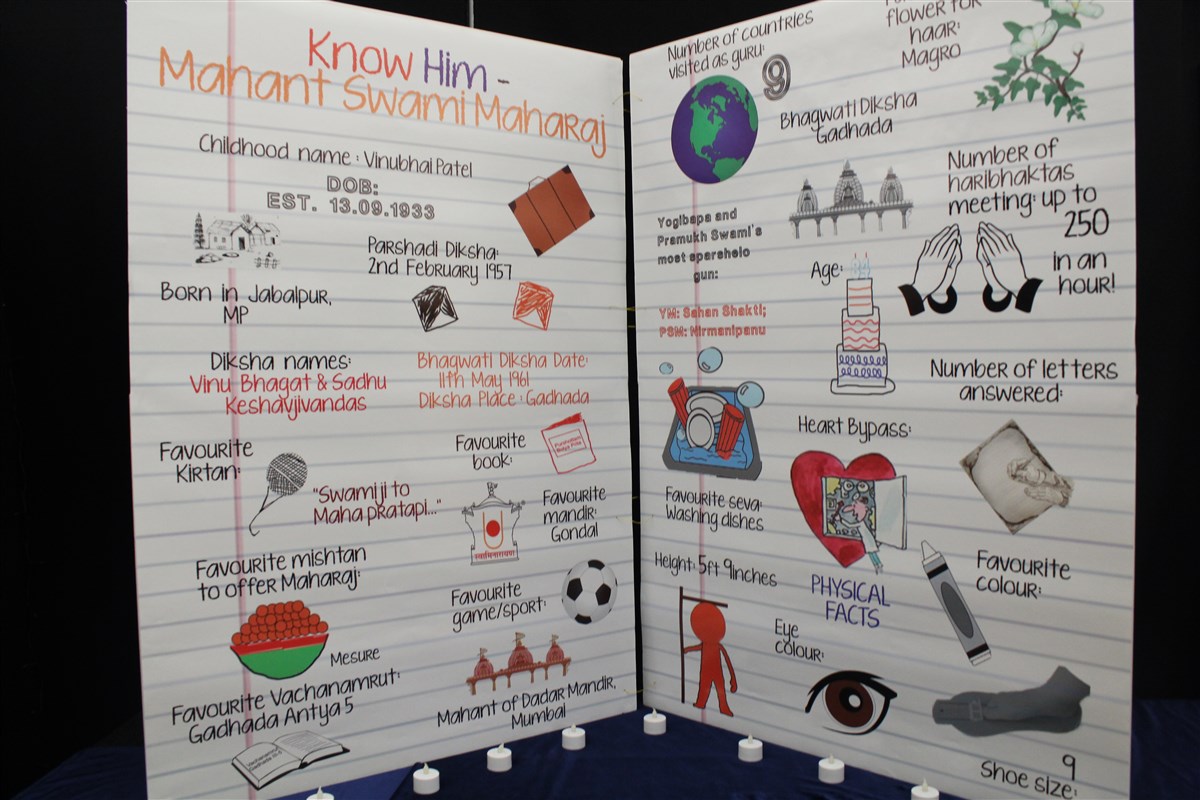 Know Him -
Mahant Swami Maharaj
Childhood name : Vinubhai Patel
DOB:
EST. 13.09.1933
Parshadi Diksha:
2nd February 1957
Born in Jabalpur,
MP
Diksha names:
Vinu Bhagat & Sadhu
Keshavjivandas
Bhagwati Diksha Date:
11th May 1961
Diksha Place : Gadhada
Favourite
Kirtan:
"Swamiji to
Maha pratapi..."
Favourite
book:
Favourite
mandir:
Gondal
स्वामिनारायण
Favourite mishtan
to offer Maharaj:
Mesure
Favourite
game/sport:
Favourite Vachanamrut:
Gadhada Antya 5
Mahant of Dadar Mandir,
Mumbai
Number of countries
visited as guru:
9
flower for
haar:
Magro
Bhagwati Diksha
Gadhada
Number of
haribhaktas
meeting: up to
250
in an
hour!
Yogibapa and
Pramukh Swami's
most sparshelo
gun:
YM: Sahan Shakti;
PSM: Nirmanipanu
Age:
Number of letters
answered:
Heart Bypass:
Favourite seva:
Washing dishes
Height: 5ft 9inches
PHYSICAL
FACTS
Favourite
colour:
Eye
colour:
9
Shoe size: